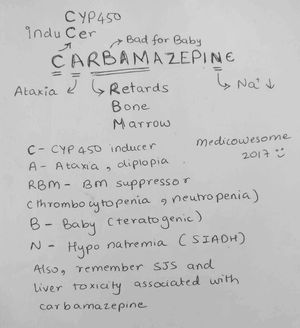 CYP450
induCer
Bad for Baby
CARBAMAZEPINE
Ataxia
Retards
Na⁺ ↓
Bone
Marrow
C - CYP 450 inducer
medicowesome
2017
A - Ataxia, diplopia
RBM - BM suppressor
(thrombocytopenia, neutropenia)
B - Baby (teratogenic)
N - Hyponatremia (SIADH)
Also, remember SJS and
liver toxicity associated with
carbamazepine